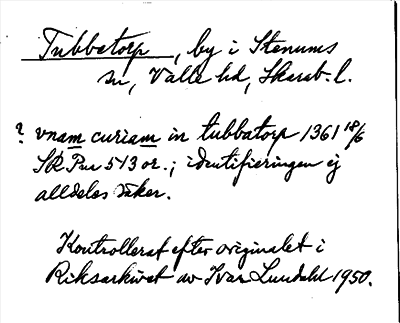 Tubbetorp, by i Stenums
sn, Valle hd, Skarab. l.
? vnam curiam in tubbatorp 1361 18/6
SR Pm 513 or.; identifieringen ej
alldeles säker.
Kontrollerat efter originalet i
Riksarkivet av Ivar Lundahl 1950.